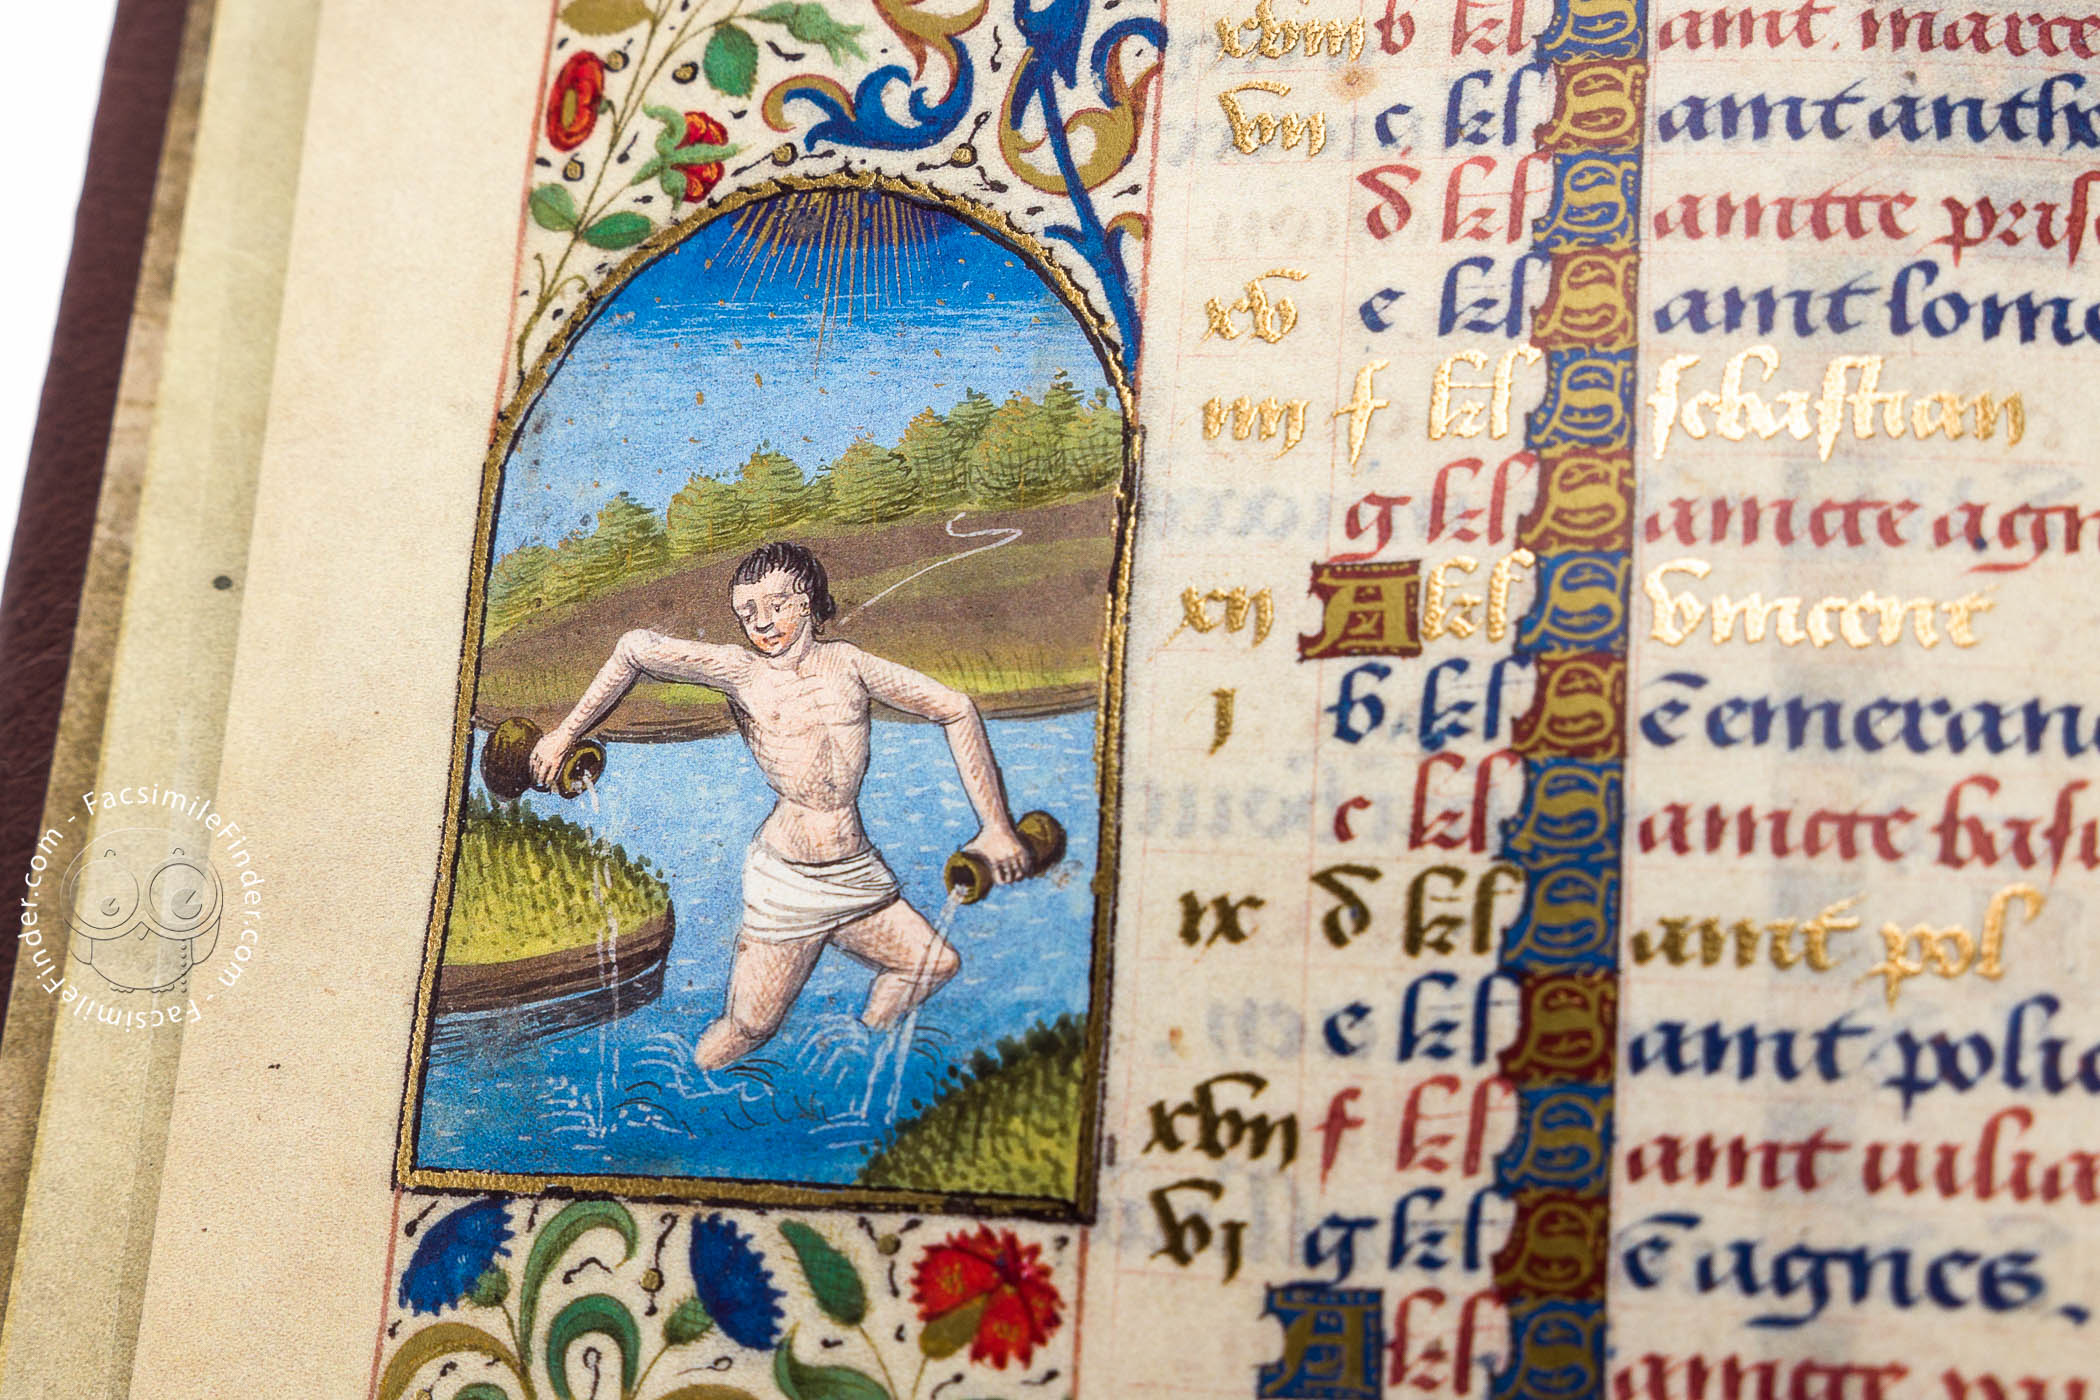 xviii b kl Saint marce
vii c kl Saint anth
d kl Saintte pris
xv e kl Saint lome
iiii f kl Sebastian
g kl Saincte agn
xii A kl Vincent
i b kl S e emeran
c kl Saincte bas
ix d kl Saint pol
e kl Saint polic
xvii f kl Saint iulia
vi g kl S e agnes.
A kl Saincte
FacsimileFinder.com - FacsimileFinder.com - FacsimileFinder.com